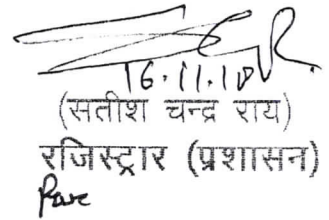 16.11.10
(सतीश चन्द्र राय)
रजिस्ट्रार (प्रशासन)